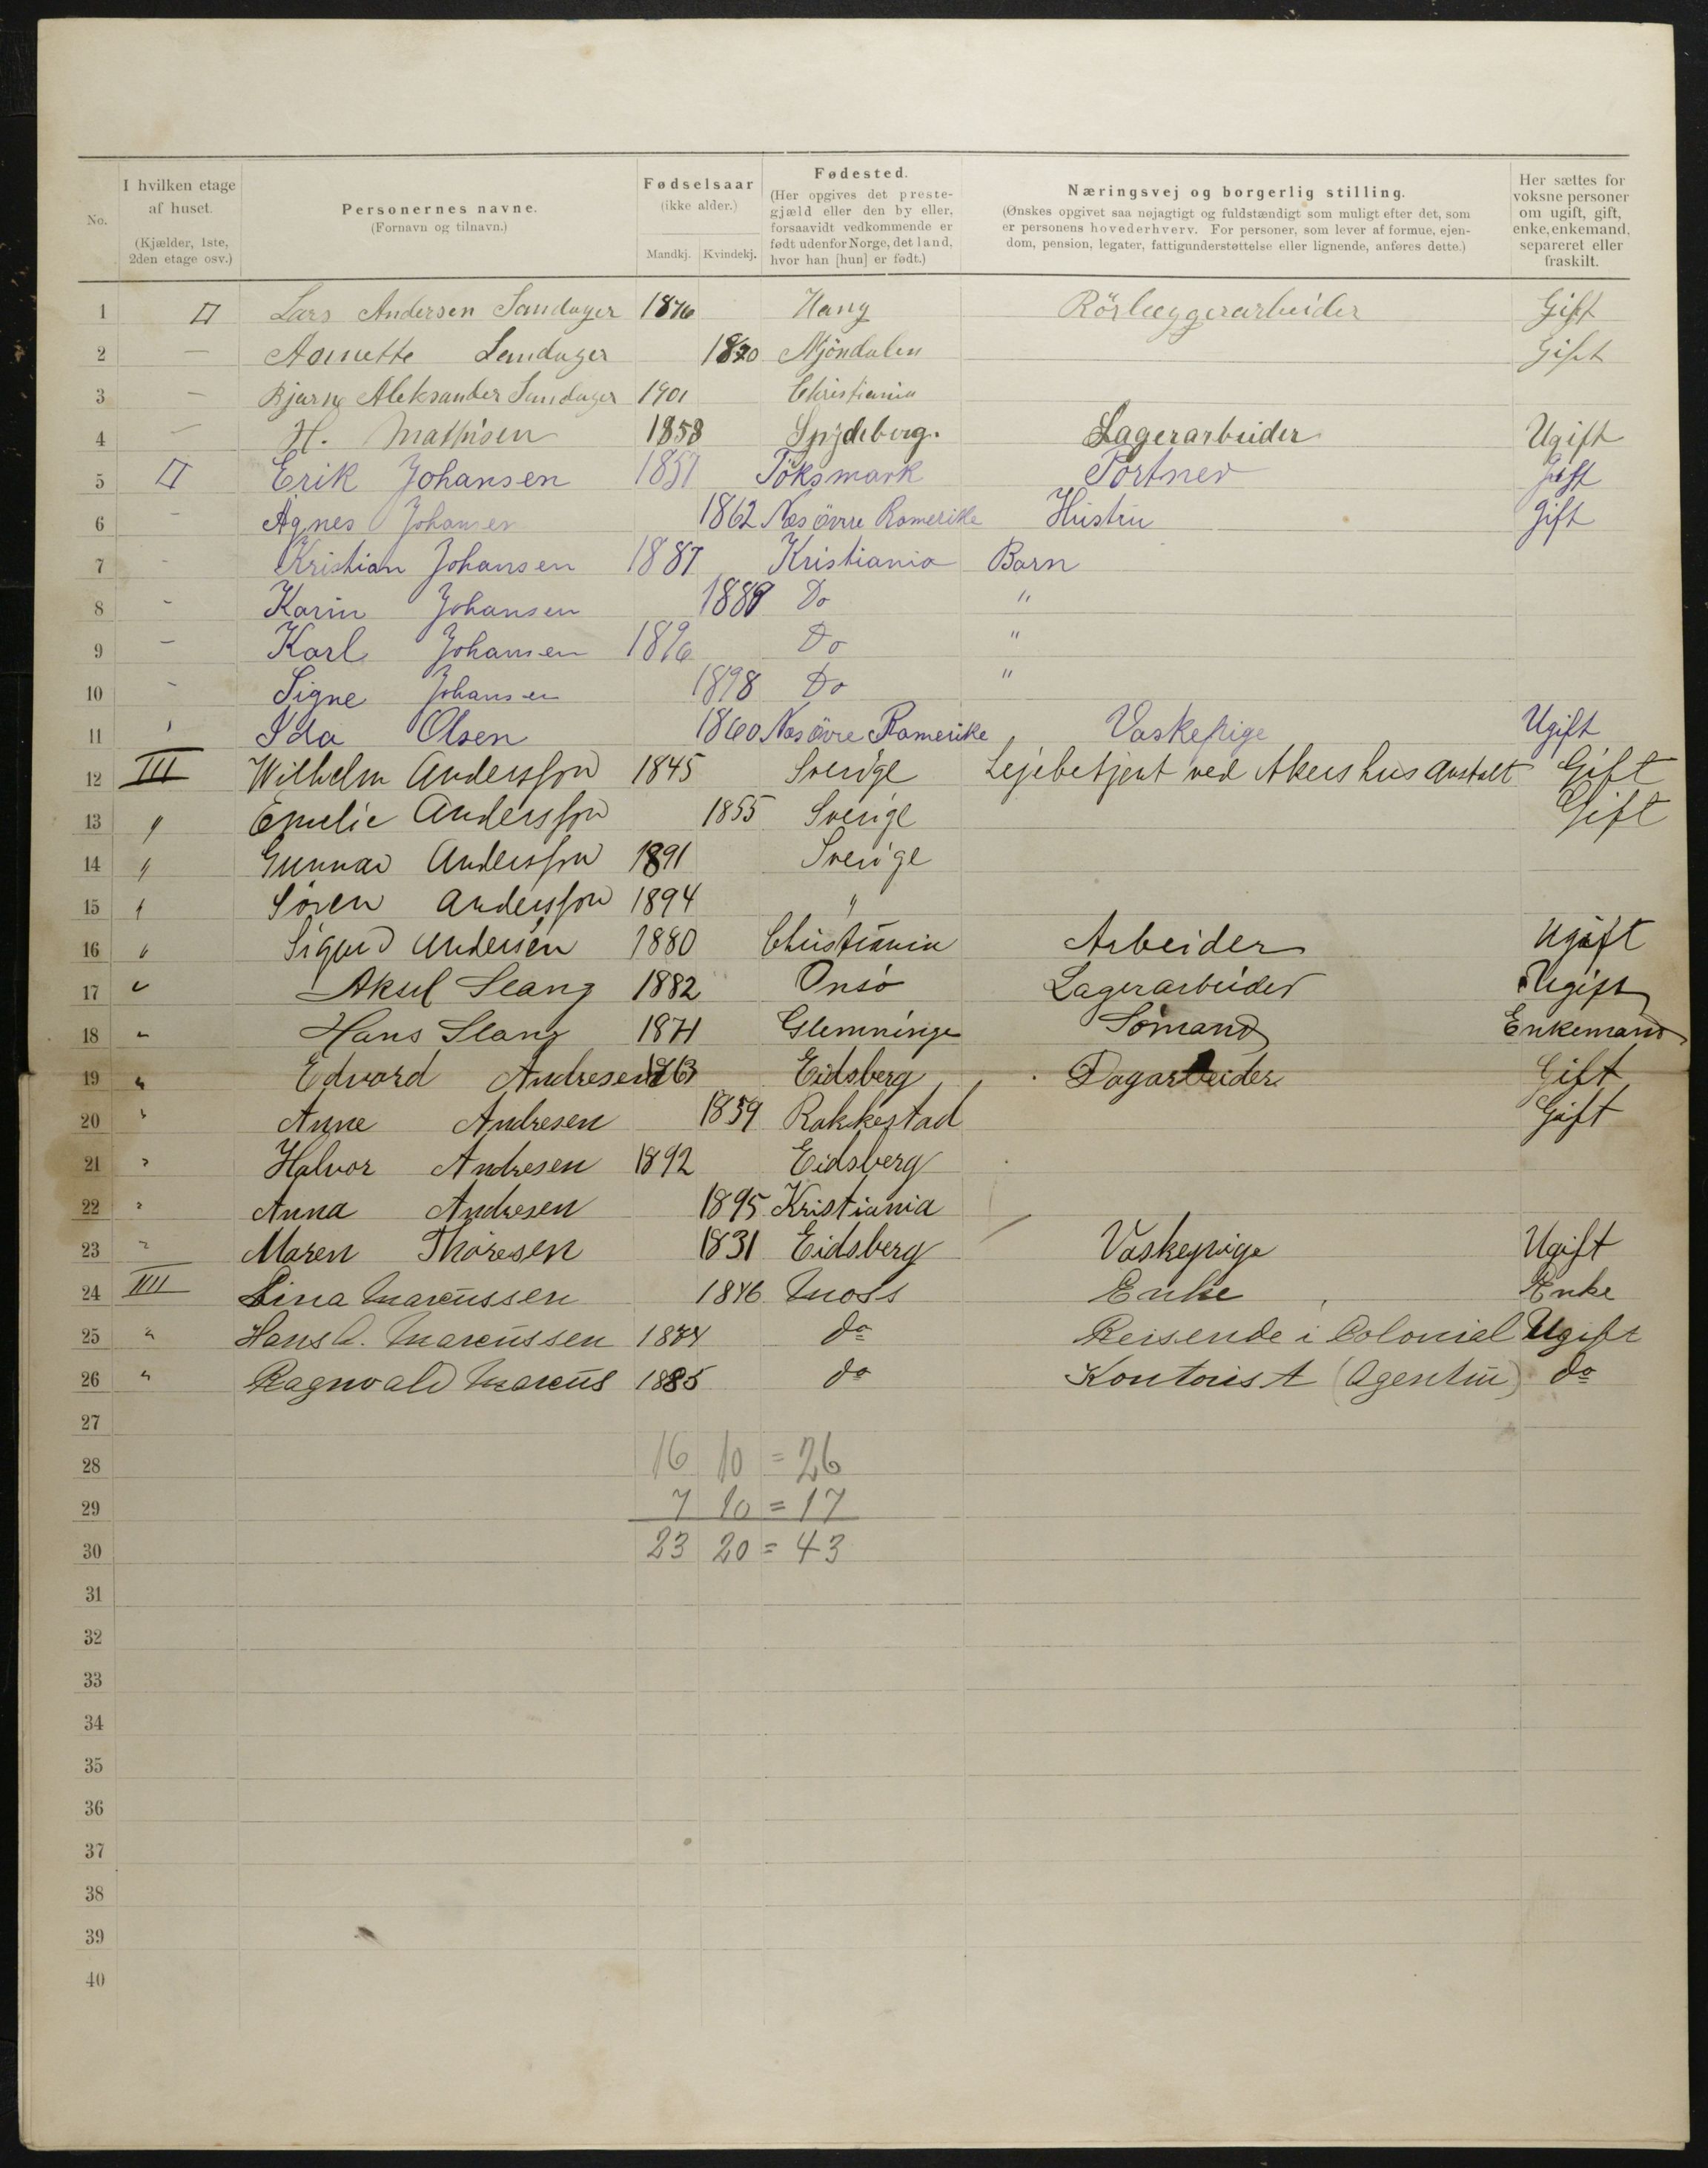 No. I hvilken etage af huset. (Kjælder, 1ste, 2den etage osv.) Personernes navne. (Fornavn og tilnavn.) Fødselsaar (ikke alder.) Mandkj. Kvindekj. Fødested. (Her opgives det prestegjæld eller den by eller, forsaavidt vedkommende er født udenfor Norge, det land, hvor han [hun] er født.) Næringsvej og borgerlig stilling. (Ønskes opgivet saa nøjagtigt og fuldstændigt som muligt efter det, som er personens hovederhverv. For personer, som lever af formue, ejendom, pension, legater, fattigunderstøttelse eller lignende, anføres dette.) Her sættes for voksne personer om ugift, gift, enke, enkemand, separeret eller fraskilt.
1 II Lars Andersen Sandager 1876 Haug Rörlæggerarbeider Gift
2 — Annette Sandager 1870 Mjöndalen Gift
3 — Bjarne Aleksander Sandager 1901 Christiania
4 — H. Mathisen 1858 Spydeberg. Lagerarbeider Ugift
5 II Erik Johansen 1857 Töksmark Portner Gift
6 - Agnes Johansen 1862 Næs övre Romerike Hustru Gift
7 - Kristian Johansen 1887 Kristiania Barn
8 - Karin Johansen 1889 Do "
9 - Karl Johansen 1896 Do "
10 - Signe Johansen 1898 Do "
11 ' Ida Olsen 1860 Næs övre Romerike Vaskepige Ugift
12 III Wilhelm Andersson 1845 Sverige Lejebetjent ved Akershus Anstalt Gift
13 " Emelie Andersson 1855 Sverige Gift
14 " Gunnar Andersson 1891 Sverige
15 " Sören Andersson 1894 "
16 " Sigurd Andersen 1880 Christiania Arbeider Ugift
17 " Aksel Slang 1882 Onsö Lagerarbeider Ugift
18 " Hans Slang 1871 Glemminge Sömand Enkemand
19 " Edvard Andresen 1863 Eidsberg Dagarbeider Gift
20 " Anne Andresen 1859 Rakkestad Gift
21 " Halvor Andresen 1892 Eidsberg
22 " Anna Andresen 1895 Kristiania
23 " Maren Thoresen 1831 Eidsberg Vaskepige Ugift
24 IIII Lina Marcussen 1846 Moss Enke Enke
25 " Hans A. Marcussen 1874 do Reisende i Colonial Ugift
26 " Ragnvald Marcus 1885 do Kontorist (Agentur) do
27
28 16 10 = 26
29 7 10 = 17
30 23 20 = 43
31
32
33
34
35
36
37
38
39
40